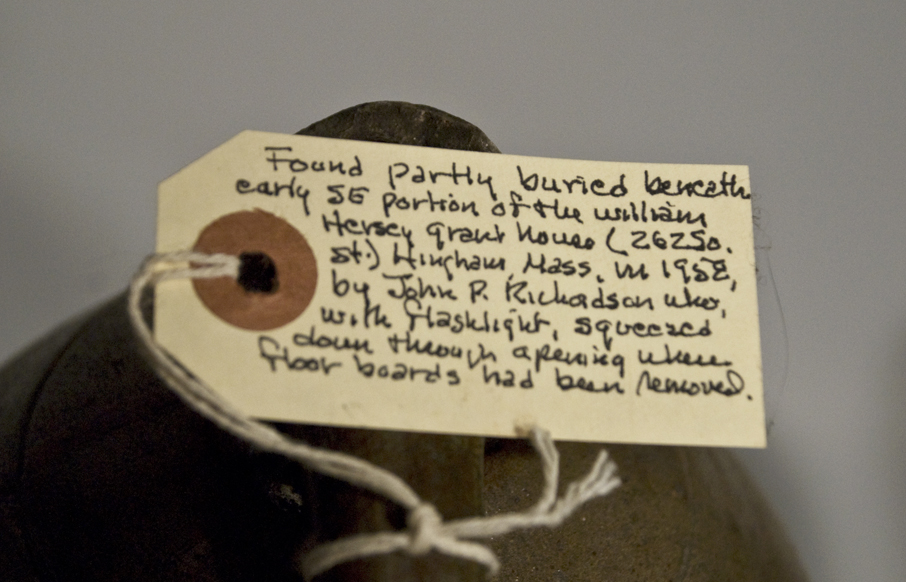 Found partly buried beneath
early SE portion of the william
Hersey grant house (262 So.
st.) Hingham, Mass. in 1958,
by John P. Richardson who,
with flashlight, squeezed
down through opening when
floor boards had been removed.